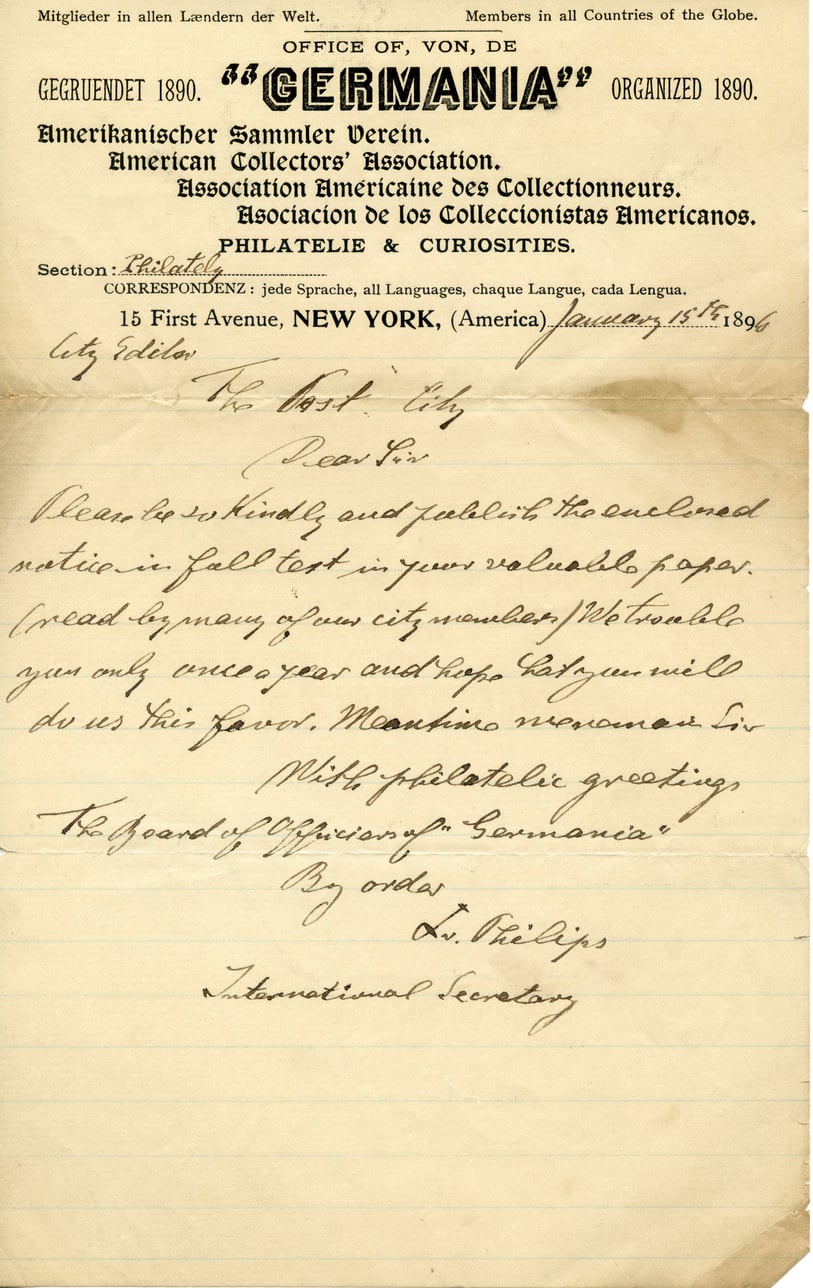 Mitglieder in allen Lændern der Welt. Members in all Countries of the Globe.
OFFICE OF, VON, DE
GEGRUENDET 1890. "GERMANIA" ORGANIZED 1890.
Amerikanischer Sammler Verein.
American Collectors' Association.
Association Américaine des Collectionneurs.
Asociacion de los Colleccionistas Americanos.
PHILATELIE & CURIOSITIES.
Section: Philately
CORRESPONDENZ: jede Sprache, all Languages, chaque Langue, cada Lengua.
15 First Avenue, NEW YORK, (America) January 15th 1896
City Editor
The Post City
Dear Sir
Please be so Kindly and publish the enclosed
notice in full test in your valuable paper.
(read by many of our city members) We trouble
you only once a year and hope that you will
do us this favor. Meantime we remain Sir
With philatelic greetings
The Board of Officiers of "Germania"
By order
Philips
International Secretary